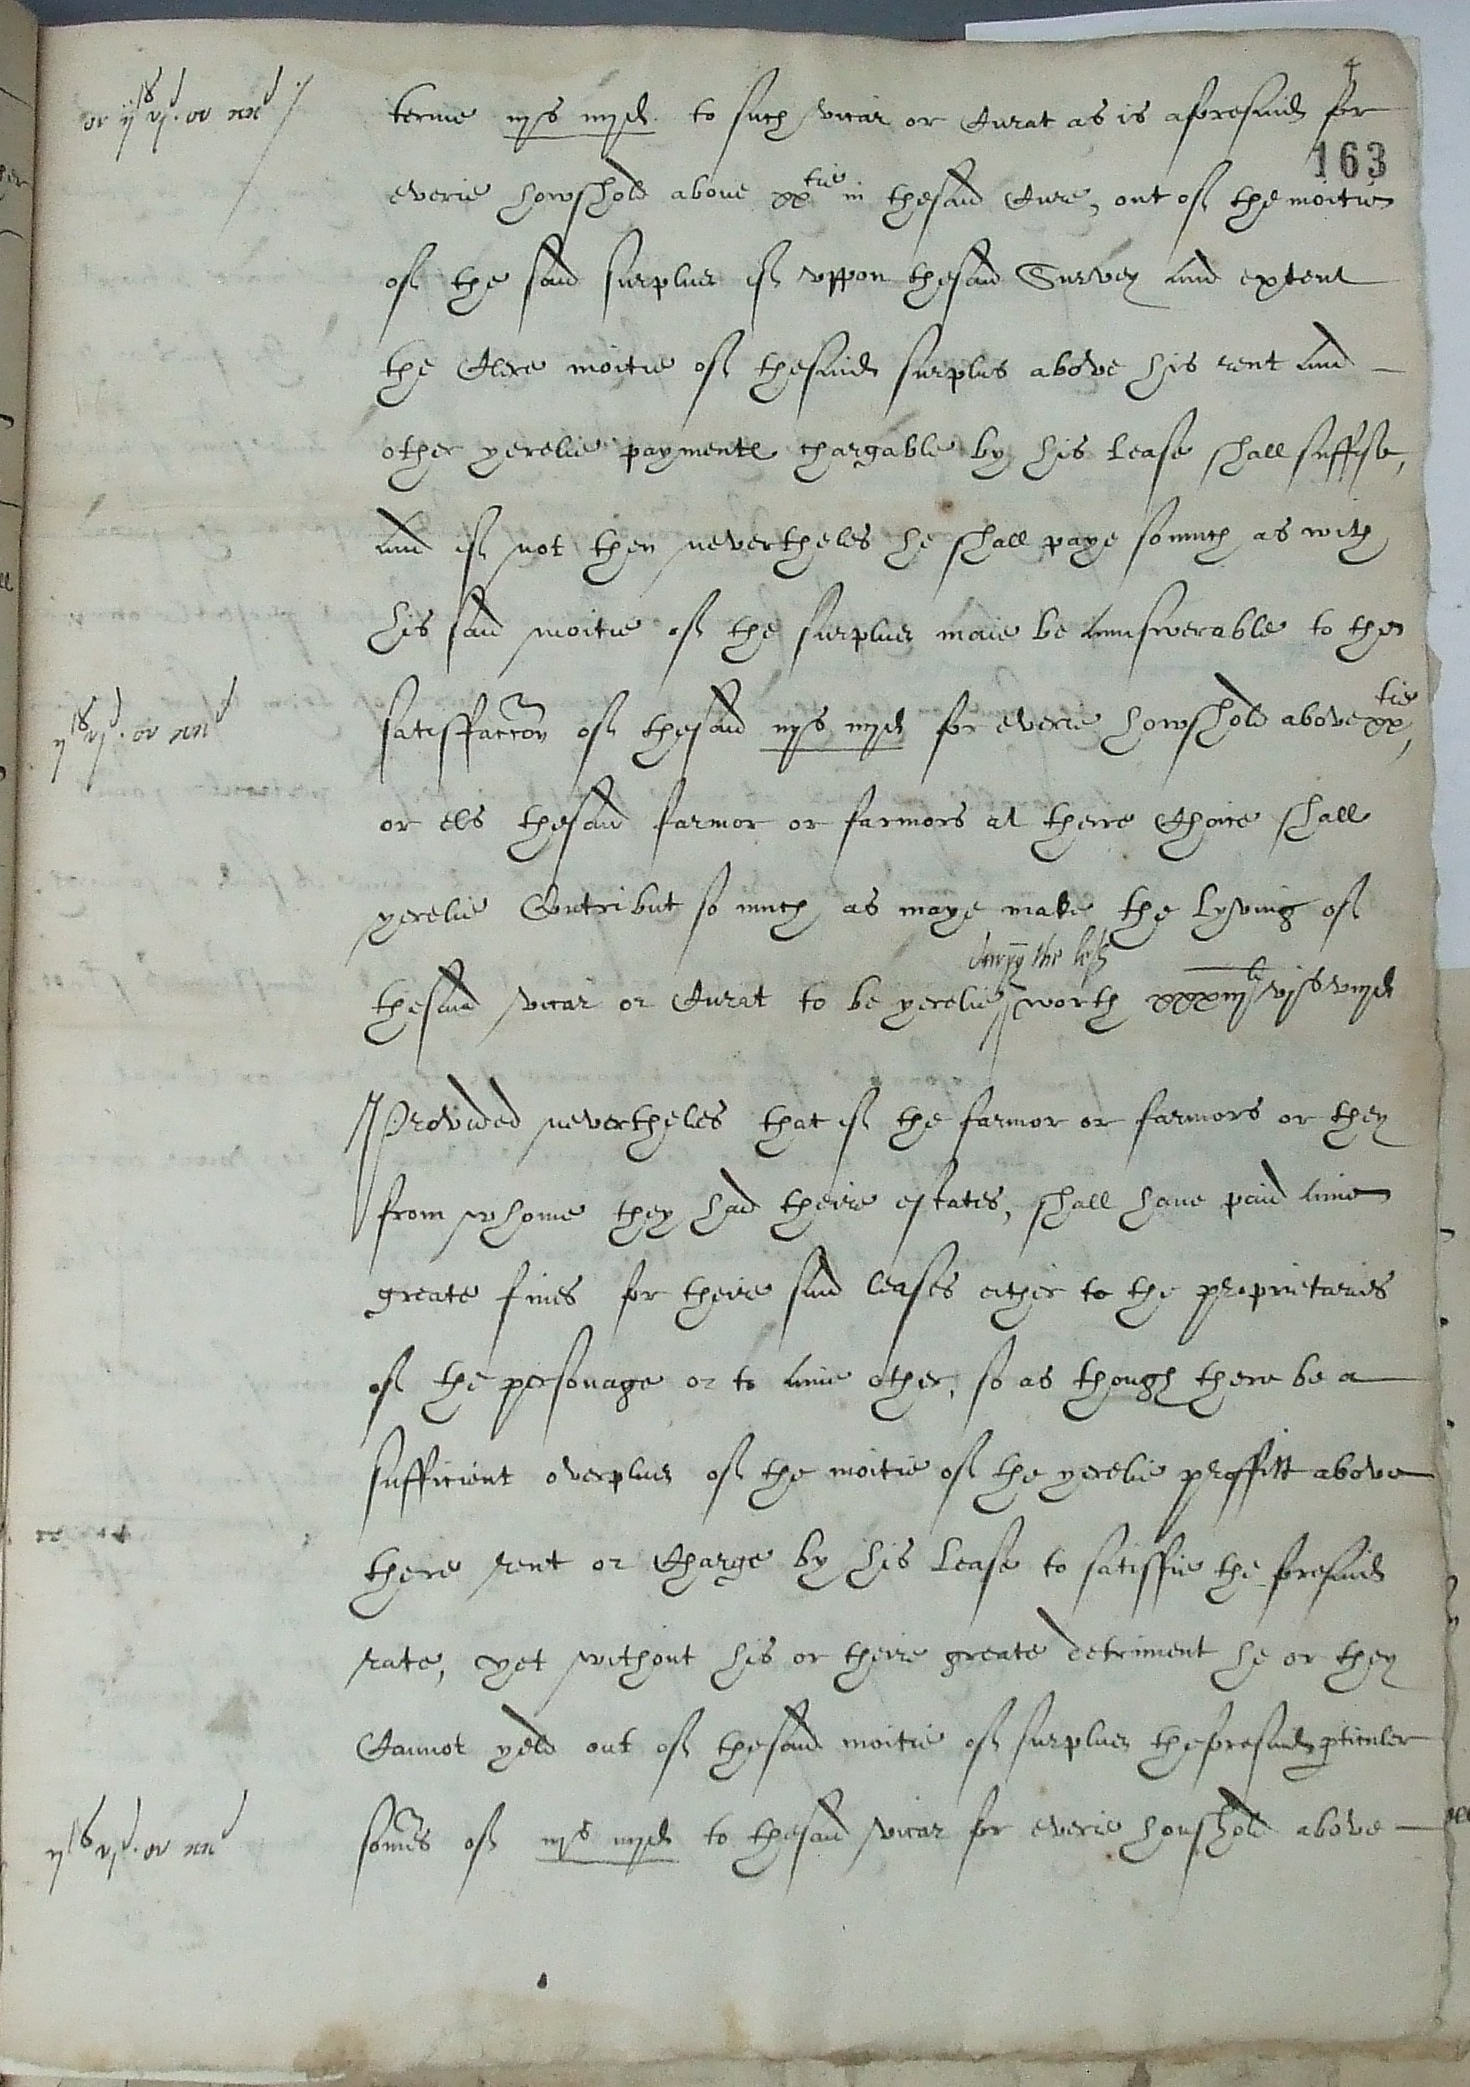 or ijs vjd. or xxd /
terme iijs iiijd to such vicar or Curat as is aforesaid for
163
everie howshold above xxtie in thesaid Cure, out of the moitie
of the said surplus if vppon thesaid Survey and extent
the Clere moitie of thesaid surplus above his rent and
other yerelie payments chargable by his Lease shall suffise,
And if not then nevertheles he shall paye somuch as with
his said moitie of the surplus maie be aunswerable to the
ijs vjd. or xxd
satisffaccon of thesaid iijs iiijd for everie howshold above xxtie,
or els thesaid farmor or farmors at there Choice shall
yerelie Contribut so much as maye make the Lyving of
the lest
thesaid vicar or Curat to be yerelie worth xxxiijli vjs viijd
Provided nevertheles that if the farmor or farmors or they
from whome they had theire estates, shall haue paid anie
greate fines for theire said leases either to the proprietaries
of the personage or to anie other, so as though there be a
sufficient overplus of the moitie of the yerelie proffitt above
there rent or Charge by his Lease to satisffie the foresaid
rate, yet without his or theire greate detriment he or they
Cannot yeld out of thesaid moitie of surplus theforesaid pticuler
ijs vjd. or xxd
somes of iijs iiijd to thesaid vicar for everie houshold above